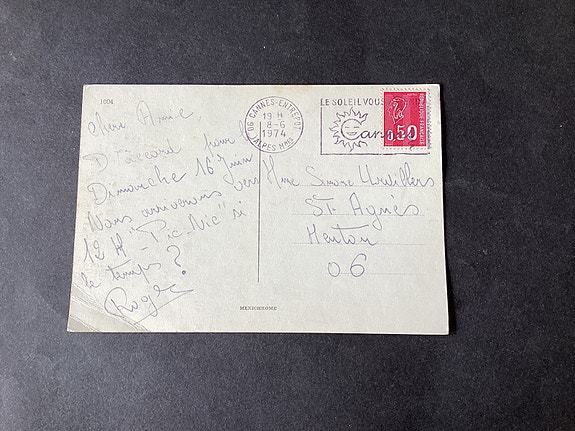 1004
Chère Amie
D'accord pour
Dimanche 16 Juin
Nous arriverons vers
12 H "Pic-Nic" si
le temps?
Roger
06 CANNES-ENTREPOT
19 H
8-6
1974
ALPES MMES
LE SOLEIL VOUS
Cannes
0,50
REPUBLIQUE FRANÇAISE
Mme Simone
St. Agnès
Menton
06
MEXICHROME